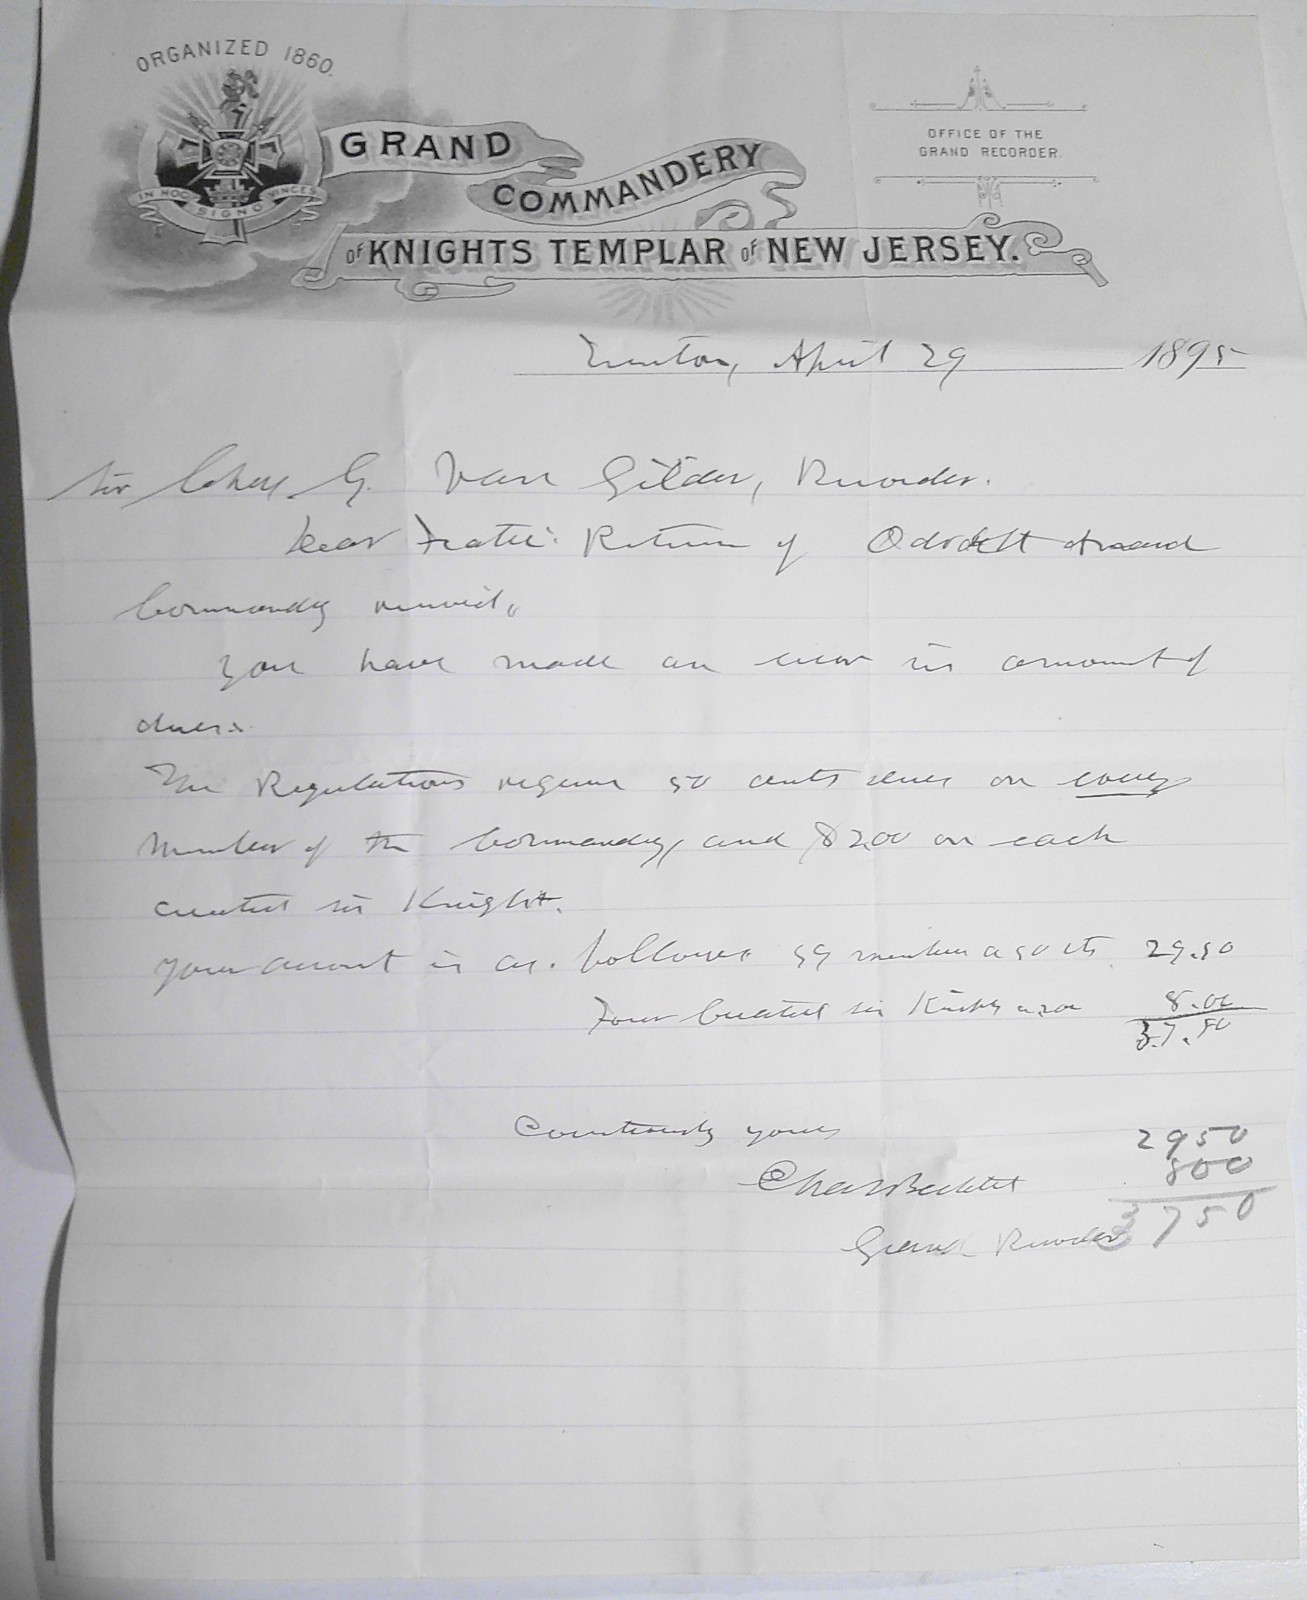 ORGANIZED 1860.
IN HOC SIGNO VINCES
GRAND
COMMANDERY
OF KNIGHTS TEMPLAR OF NEW JERSEY.
OFFICE OF THE
GRAND RECORDER.
Trenton, April 29 1895
Sir Chas G. Van Gilder, Recorder.
Dear Frater: Return of Odo de St Amand
Commandery received.
You have made an error in amount of
dues.
The Regulations require 50 cents dues on every
member of the Commandery, and $2.00 on each
created Sir Knight.
Your amount is as follows 59 members a 50 cts. 29.50
Four Created Sir Knights a 2.00 8.00
37.50
Courteously yours
Chas Bechtel
Grand Recorder
2950
800
3750